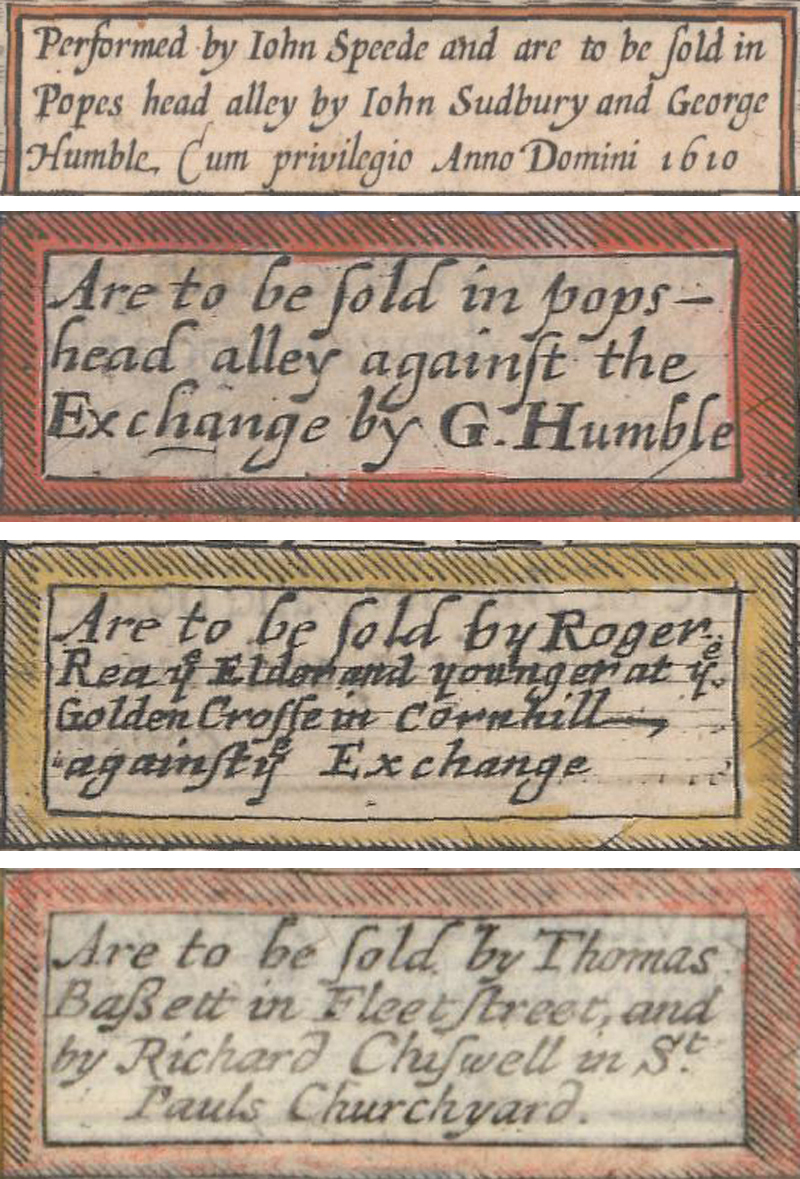 Performed by Iohn Speede and are to be ſold in
Popes head alley by Iohn Sudbury and George
Humble, Cum privilegio Anno Domini 1610
Are to be ſold in pops–
head alley againſt the
Exchange by G. Humble
Are to be ſold by Roger
Rea yͤ Elder and younger at yͤ
Golden Croſſe in Cornhill
againſt yͤ Exchange
Are to be ſold by Thomas
Baßett in Fleetſtreet, and
by Richard Chiſwell in Sᵗ.
Pauls Churchyard.